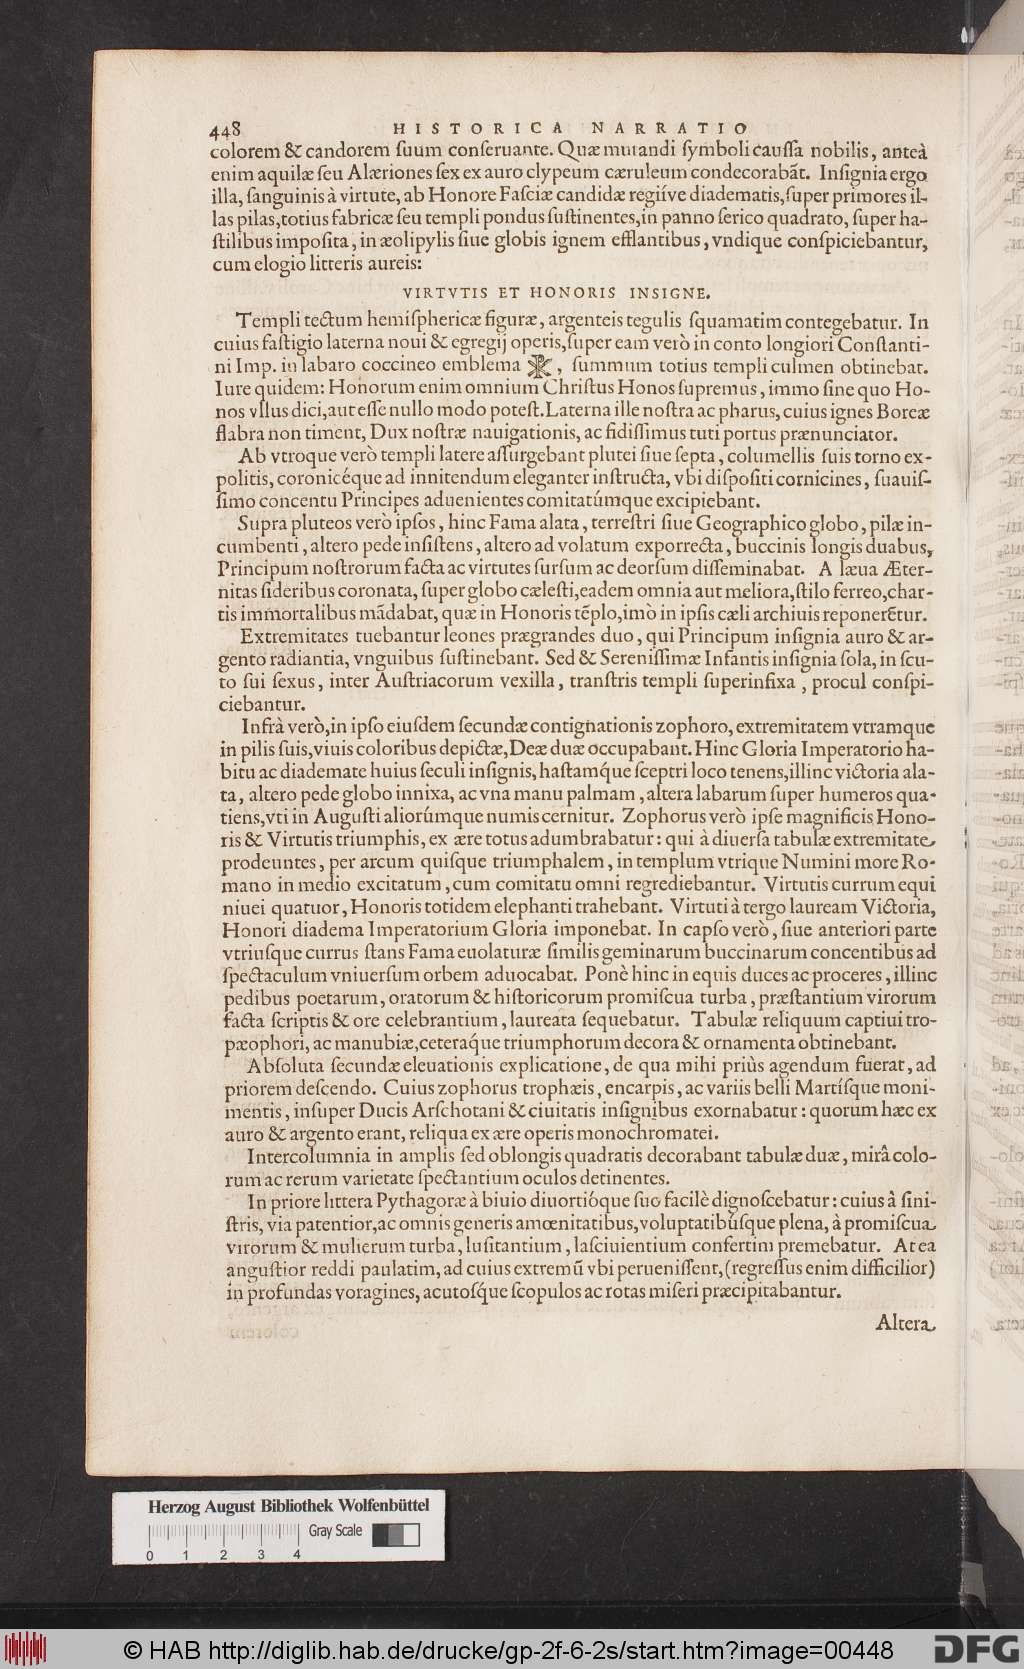 448 HISTORICA NARRATIO
colorem & candorem ſuum conſeruante. Quæ mutandi ſymboli cauſſa nobilis, anteà
enim aquilæ ſeu Alæriones ſex ex auro clypeum cæruleum condecorabāt. Inſignia ergo
illa, ſanguinis à virtute, ab Honore Faſciæ candidæ regiíve diadematis, ſuper primores il-
las pilas, totius fabricæ ſeu templi pondus ſuſtinentes, in panno ſerico quadrato, ſuper ha-
ſtilibus impoſita, in æolipylis ſiue globis ignem efflantibus, vndique conſpiciebantur,
cum elogio litteris aureis:
VIRTVTIS ET HONORIS INSIGNE.
Templi tectum hemiſphericæ figuræ, argenteis tegulis ſquamatim contegebatur. In
cuius faſtigio laterna noui & egregij operis, ſuper eam verò in conto longiori Conſtanti-
ni Imp. in labaro coccineo emblema ☧, ſummum totius templi culmen obtinebat.
Iure quidem: Honorum enim omnium Chriſtus Honos ſupremus, immo ſine quo Ho-
nos vllus dici, aut eſſe nullo modo poteſt. Laterna ille noſtra ac pharus, cuius ignes Boreæ
flabra non timent, Dux noſtræ nauigationis, ac fidiſſimus tuti portus prænunciator.
Ab vtroque verò templi latere aſſurgebant plutei ſiue ſepta, columellis ſuis torno ex-
politis, coronicéque ad innitendum eleganter inſtructa, vbi diſpoſiti cornicines, ſuauiſ-
ſimo concentu Principes aduenientes comitatúmque excipiebant.
Supra pluteos verò ipſos, hinc Fama alata, terreſtri ſiue Geographico globo, pilæ in-
cumbenti, altero pede inſiſtens, altero ad volatum exporrecta, buccinis longis duabus,
Principum noſtrorum facta ac virtutes ſurſum ac deorſum diſſeminabat. A læua Æter-
nitas ſideribus coronata, ſuper globo cæleſti, eadem omnia aut meliora, ſtilo ferreo, char-
tis immortalibus mādabat, quæ in Honoris tēplo, imò in ipſis cæli archiuis reponerētur.
Extremitates tuebantur leones prægrandes duo, qui Principum inſignia auro & ar-
gento radiantia, vnguibus ſuſtinebant. Sed & Sereniſſimæ Infantis inſignia ſola, in ſcu-
to ſui ſexus, inter Auſtriacorum vexilla, tranſtris templi ſuperinfixa, procul conſpi-
ciebantur.
Infrà verò, in ipſo eiuſdem ſecundæ contignationis zophoro, extremitatem vtramque
in pilis ſuis, viuis coloribus depictæ, Deæ duæ occupabant. Hinc Gloria Imperatorio ha-
bitu ac diademate huius ſeculi inſignis, haſtamq́ue ſceptri loco tenens, illinc victoria ala-
ta, altero pede globo innixa, ac vna manu palmam, altera labarum ſuper humeros qua-
tiens, vti in Auguſti aliorúmque numis cernitur. Zophorus verò ipſe magnificis Hono-
ris & Virtutis triumphis, ex ære totus adumbrabatur: qui à diuerſa tabulæ extremitate
prodeuntes, per arcum quiſque triumphalem, in templum vtrique Numini more Ro-
mano in medio excitatum, cum comitatu omni regrediebantur. Virtutis currum equi
niuei quatuor, Honoris totidem elephanti trahebant. Virtuti à tergo lauream Victoria,
Honori diadema Imperatorium Gloria imponebat. In capſo verò, ſiue anteriori parte
vtriuſque currus ſtans Fama euolaturæ ſimilis geminarum buccinarum concentibus ad
ſpectaculum vniuerſum orbem aduocabat. Ponè hinc in equis duces ac proceres, illinc
pedibus poetarum, oratorum & hiſtoricorum promiſcua turba, præſtantium virorum
facta ſcriptis & ore celebrantium, laureata ſequebatur. Tabulæ reliquum captiui tro-
pæophori, ac manubiæ, ceteraq́ue triumphorum decora & ornamenta obtinebant.
Abſoluta ſecundæ eleuationis explicatione, de qua mihi priùs agendum fuerat, ad
priorem deſcendo. Cuius zophorus trophæis, encarpis, ac variis belli Martíſque moni-
mentis, inſuper Ducis Arſchotani & ciuitatis inſignibus exornabatur: quorum hæc ex
auro & argento erant, reliqua ex ære operis monochromatei.
Intercolumnia in amplis ſed oblongis quadratis decorabant tabulæ duæ, mirâ colo-
rum ac rerum varietate ſpectantium oculos detinentes.
In priore littera Pythagoræ à biuio diuortióque ſuo facilè dignoſcebatur: cuius â ſini-
ſtris, via patentior, ac omnis generis amœnitatibus, voluptatibúſque plena, à promiſcua
virorum & mulierum turba, luſitantium, laſciuientium confertim premebatur. At ea
anguſtior reddi paulatim, ad cuius extremū vbi perueniſſent, (regreſſus enim difficilior)
in profundas voragines, acutoſq́ue ſcopulos ac rotas miſeri præcipitabantur.
Altera
Herzog August Bibliothek Wolfenbüttel
Gray Scale
0 1 2 3 4
© HAB http://diglib.hab.de/drucke/gp-2f-6-2s/start.htm?image=00448
DFG